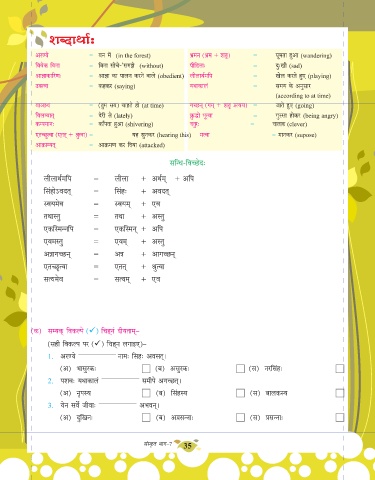 शब्दार्थाः
अरण्ये = वन में (in the forest) भ्रमन् (भ्रम + शतृ) = घूमता हुआ (wandering)
विवेकं विना = बिना सोचे-समझे (without) पीडिताः = दुःखी (sad)
आज्ञाकारिणः = आज्ञा का पालन करने वाले (obedient) लीलार्थमपि = खेल करते हुए (playing)
उक्त्वा = कहकर (saying) यथाकालं = समय के अनुसार
(according to at time)
(at time) = जाते हुए (going)
= देरी से (lately) = गुस्सा होकर (being angry)
= काँपता हुआ (shivering) = चालाक (clever)
एतच्छ्रुत्वा (एतत् + श्रुत्वा) = यह सुनकर (hearing this) मत्वा = मानकर (supose)
= आक्रमण कर दिया (attacked)
सन्धि-विच्छेदः
लीलार्थमपि = लीला + अर्थम् + अपि
सिंहोऽवदत् = सिंहः + अवदत्
स्वयमेव = स्वयम् + एव
तथास्तु = तथा + अस्तु
एकस्मिन्नपि = एकस्मिन् + अपि
एवमस्तु = एवम् + अस्तु
अत्रागच्छन् = अत्र + आगच्छन्
एतच्छ्रुत्वा = एतत् + श्रुत्वा
सत्यमेव = सत्यम् + एव
(क) सम्यक् विकल्पे (✓) चिह्नं दीयताम्–
(सही विकल्प पर (✓) चिह्न लगाइए)–
1. अरण्ये ________ नामः सिंहः अवसत्।
(अ) भासुरकः (ब) असुरकः (स) नरसिंहः
2. पशवः यथाकालं ________ समीपे अगच्छत्।
(अ) नृपस्य (ब) सिंहस्य (स) बालकस्य
3. तेन सर्वे जीवाः ________ अभवन्।
(अ) दुःखिनः (ब) अप्रसन्नाः (स) प्रसन्नाः
संस्कृत भाग-7 35